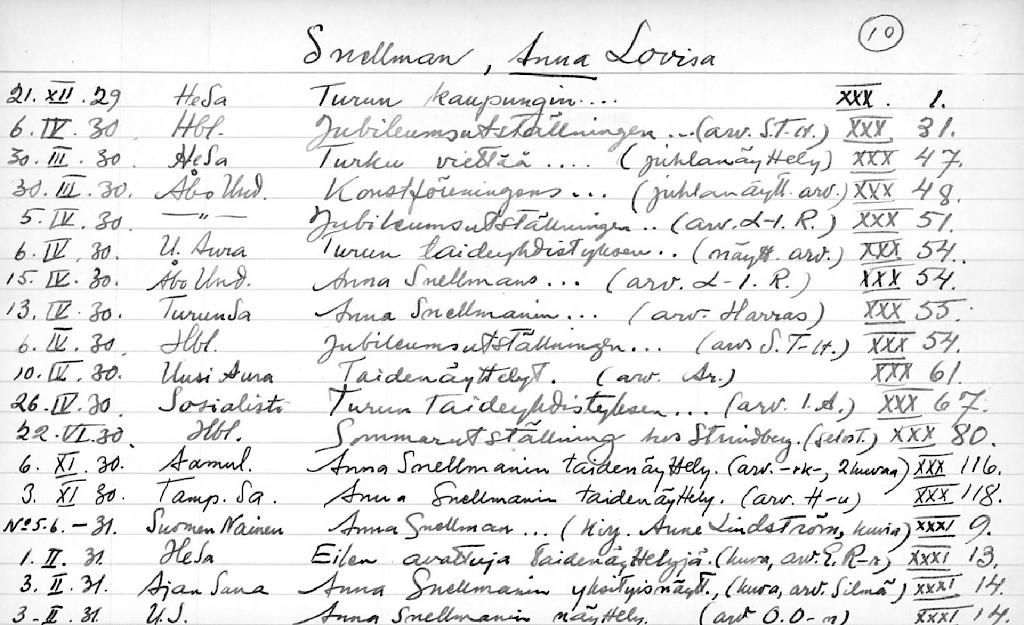 10
Snellman, Anna Lovisa
21. XII. 29 HeSa Turun kaupungin.... XXX. 1.
6. IV. 30. Hbl. Jubileumsutställningen...(arv. S.T-H.) XXX 31.
30. III. 30. HeSa Turku viettää.... (juhlanäyttely) XXX 47.
30. III. 30. Åbo Und. Konstföreningens... (juhlanäytt. arv.) XXX 48.
5. IV. 30. —"— Jubileumsutställningen.. (arv. L-I. R.) XXX 51.
6. IV. 30. U. Aura Turun taideyhdistyksen.. (näytt. arv.) XXX 54.
15. IV. 30. Åbo Und. Anna Snellmans... (arv. L-I. R.) XXX 54.
13. IV. 30. TurunSa Anna Snellmanin... (arv. Harras) XXX 55.
6. IV. 30. Hbl. Jubileumsutställningen... (arv S.T-H.) XXX 54.
10. IV. 30. Uusi Aura Taidenäyttelyt. (arv. Ar.) XXX 61.
26. IV. 30. Sosialisti Turun Taideyhdistyksen... (arv. I.A.) XXX 67.
22. VI. 30. Hbl. Sommarutställning hos Strindberg. (selost.) XXX 80.
6. XI. 30. Aamul. Anna Snellmanin taidenäyttely. (arv. -rk-, 2 kuvaa) XXX 116.
3. XI 30. Tamp. Sa. Anna Snellmanin taidenäyttely. (arv. H-u) XXX 118.
No 5-6. - 31. Suomen Nainen Anna Snellman... (kirj. Anne Lindström, kuvia) XXXI 9.
1. II. 31. HeSa Eilen avattuja taidenäyttelyjä. (kuva, arv. E. R-r) XXXI 13.
3. II. 31. Ajan Sana Anna Snellmanin yksityisnäytt., (kuva, arv. Silmä) XXXI 14.
3 - II. 31. U.S. Anna Snellmanin näyttely. (arv O.O-n) XXXI 14.